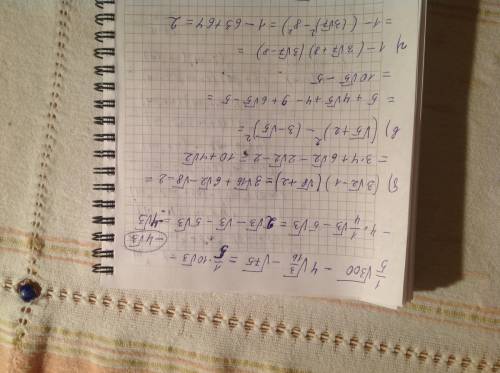 1/5 √300 − 4√(3/16) − √75 = 1/5 · 10√3 −
− 4 · 1/4 √3 − 5√3 = 2√3 − √3 − 5√3 = −4√3
−4√3
б) (3√2 − 1)(√8 + 2) = 3√16 + 6√2 − √8 − 2 =
= 3·4 + 6√2 − 2√2 − 2 = 10 + 4√2
в) (√5 + 2)² − (3 − √5)² =
= 5 + 4√5 + 4 − 9 + 6√5 − 5 =
= 10√5 − 5
г) 1 − (3√7 + 8)(3√7 − 8) =
= 1 − ((3√7)² − 8²) = 1 − 63 + 64 = 2